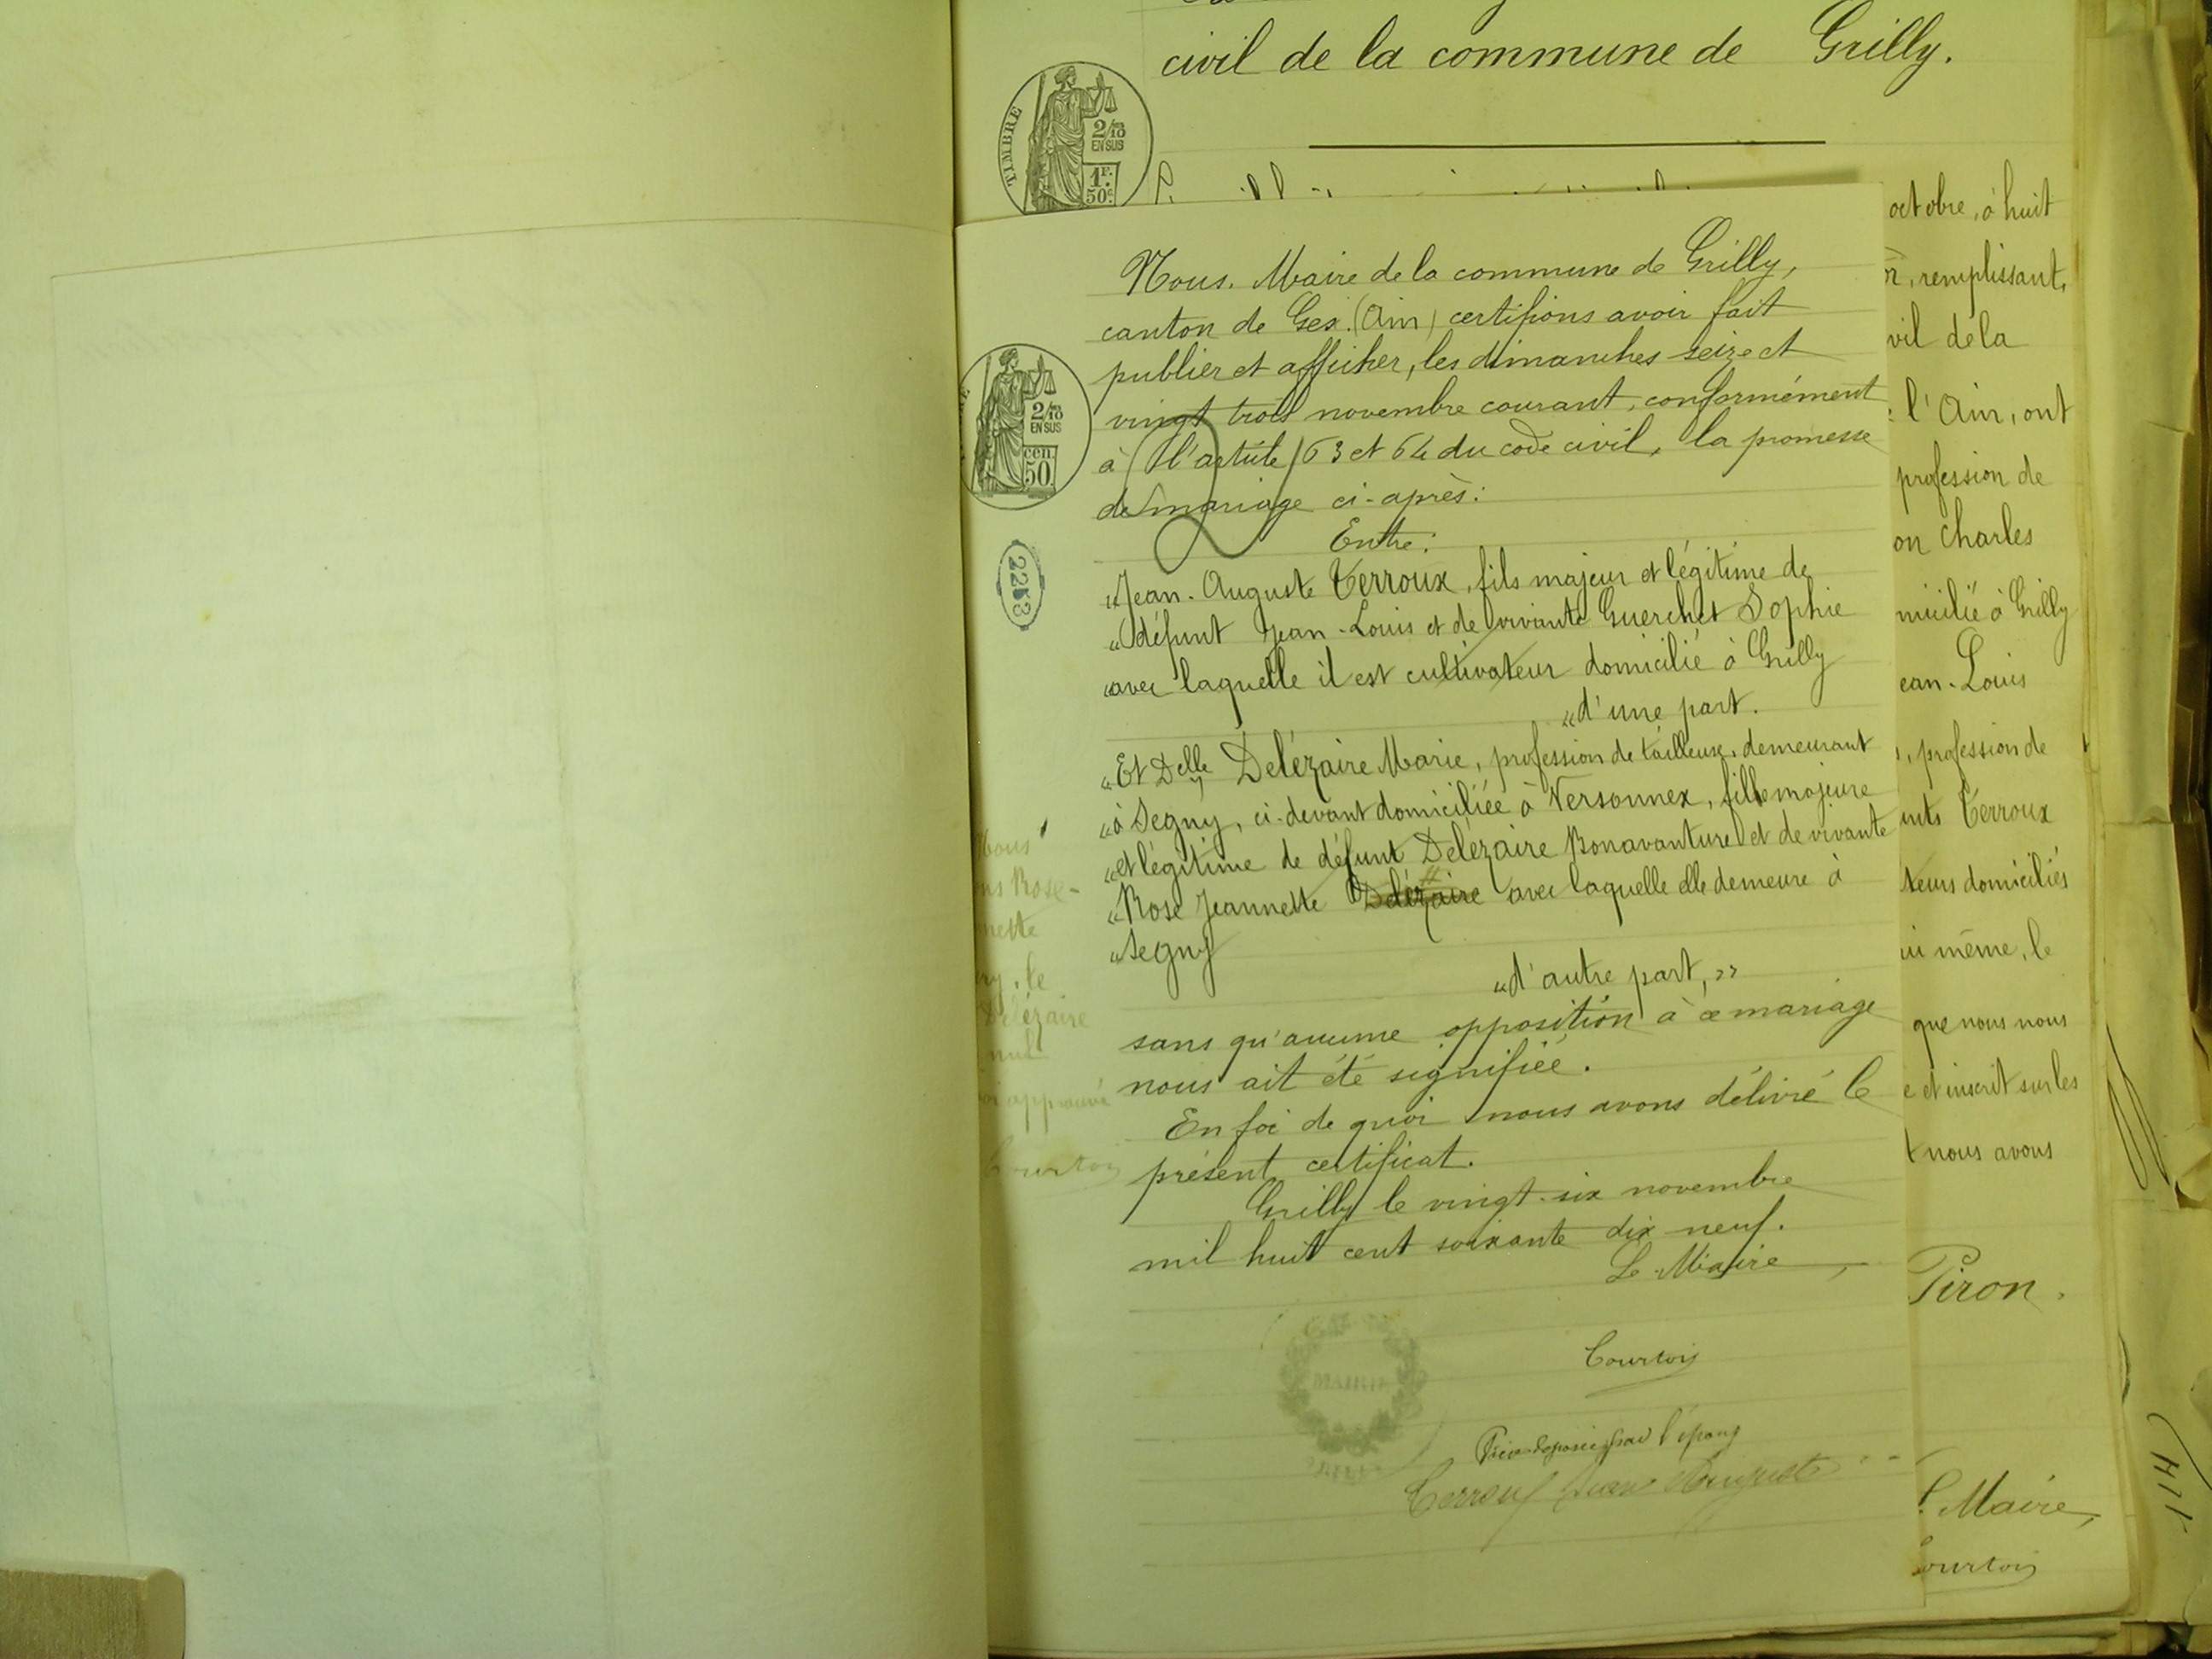 civil de la commune de Grilly.
TIMBRE
2/10
EN SUS
1F.
50c.
octobre, à huit
remplissant,
vil de la
l'Ain, ont
profession de
on Charles
micilié à Grilly
ean-Louis
, profession de
nts Terroux
teurs domiciliés
ui même, le
que nous nous
e et inscrit sur les
t nous avons
Piron.
Maire,
Courtois
Nous. Maire de la commune de Grilly,
canton de Gex. (Ain) certifions avoir fait
publier et afficher, les dimanches seize et
vingt trois novembre courant, conformément
à l'article 63 et 64 du code civil, la promesse
de mariage ci-après:
Entre:
"Jean-Auguste Terroux, fils majeur et légitime de
"défunt Jean-Louis et de vivante Guerchet Sophie
"avec laquelle il est cultivateur domicilié à Grilly
"d'une part.
"Et Delle Delézaire Marie, profession de tailleuse, demeurant
"à Segny, ci-devant domiciliée à Versonnex, fille majeure
"et légitime de défunt Delézaire Bonavanture et de vivante
"Rose Jeannette Delézaire avec laquelle elle demeure à
"Segny
"d'autre part,"
sans qu'aucune opposition à ce mariage
nous ait été signifiée.
En foi de quoi nous avons délivré le
présent certificat.
Grilly le vingt-six novembre
mil huit cent soixante dix neuf.
Le Maire,
Courtois
Pièce déposée par l'époux
Terroux Jean Auguste
2/10
EN SUS
cen.
50
2253
Rose-
nette
le
Delézaire
nul
approuvé
Courtois